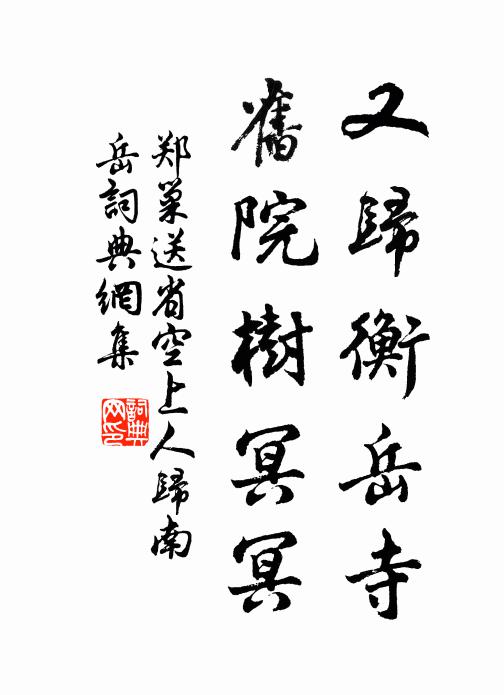 又歸衡岳寺
舊院樹冥冥
郑巢送省空上人歸南
岳詞典網集
詞典
网印